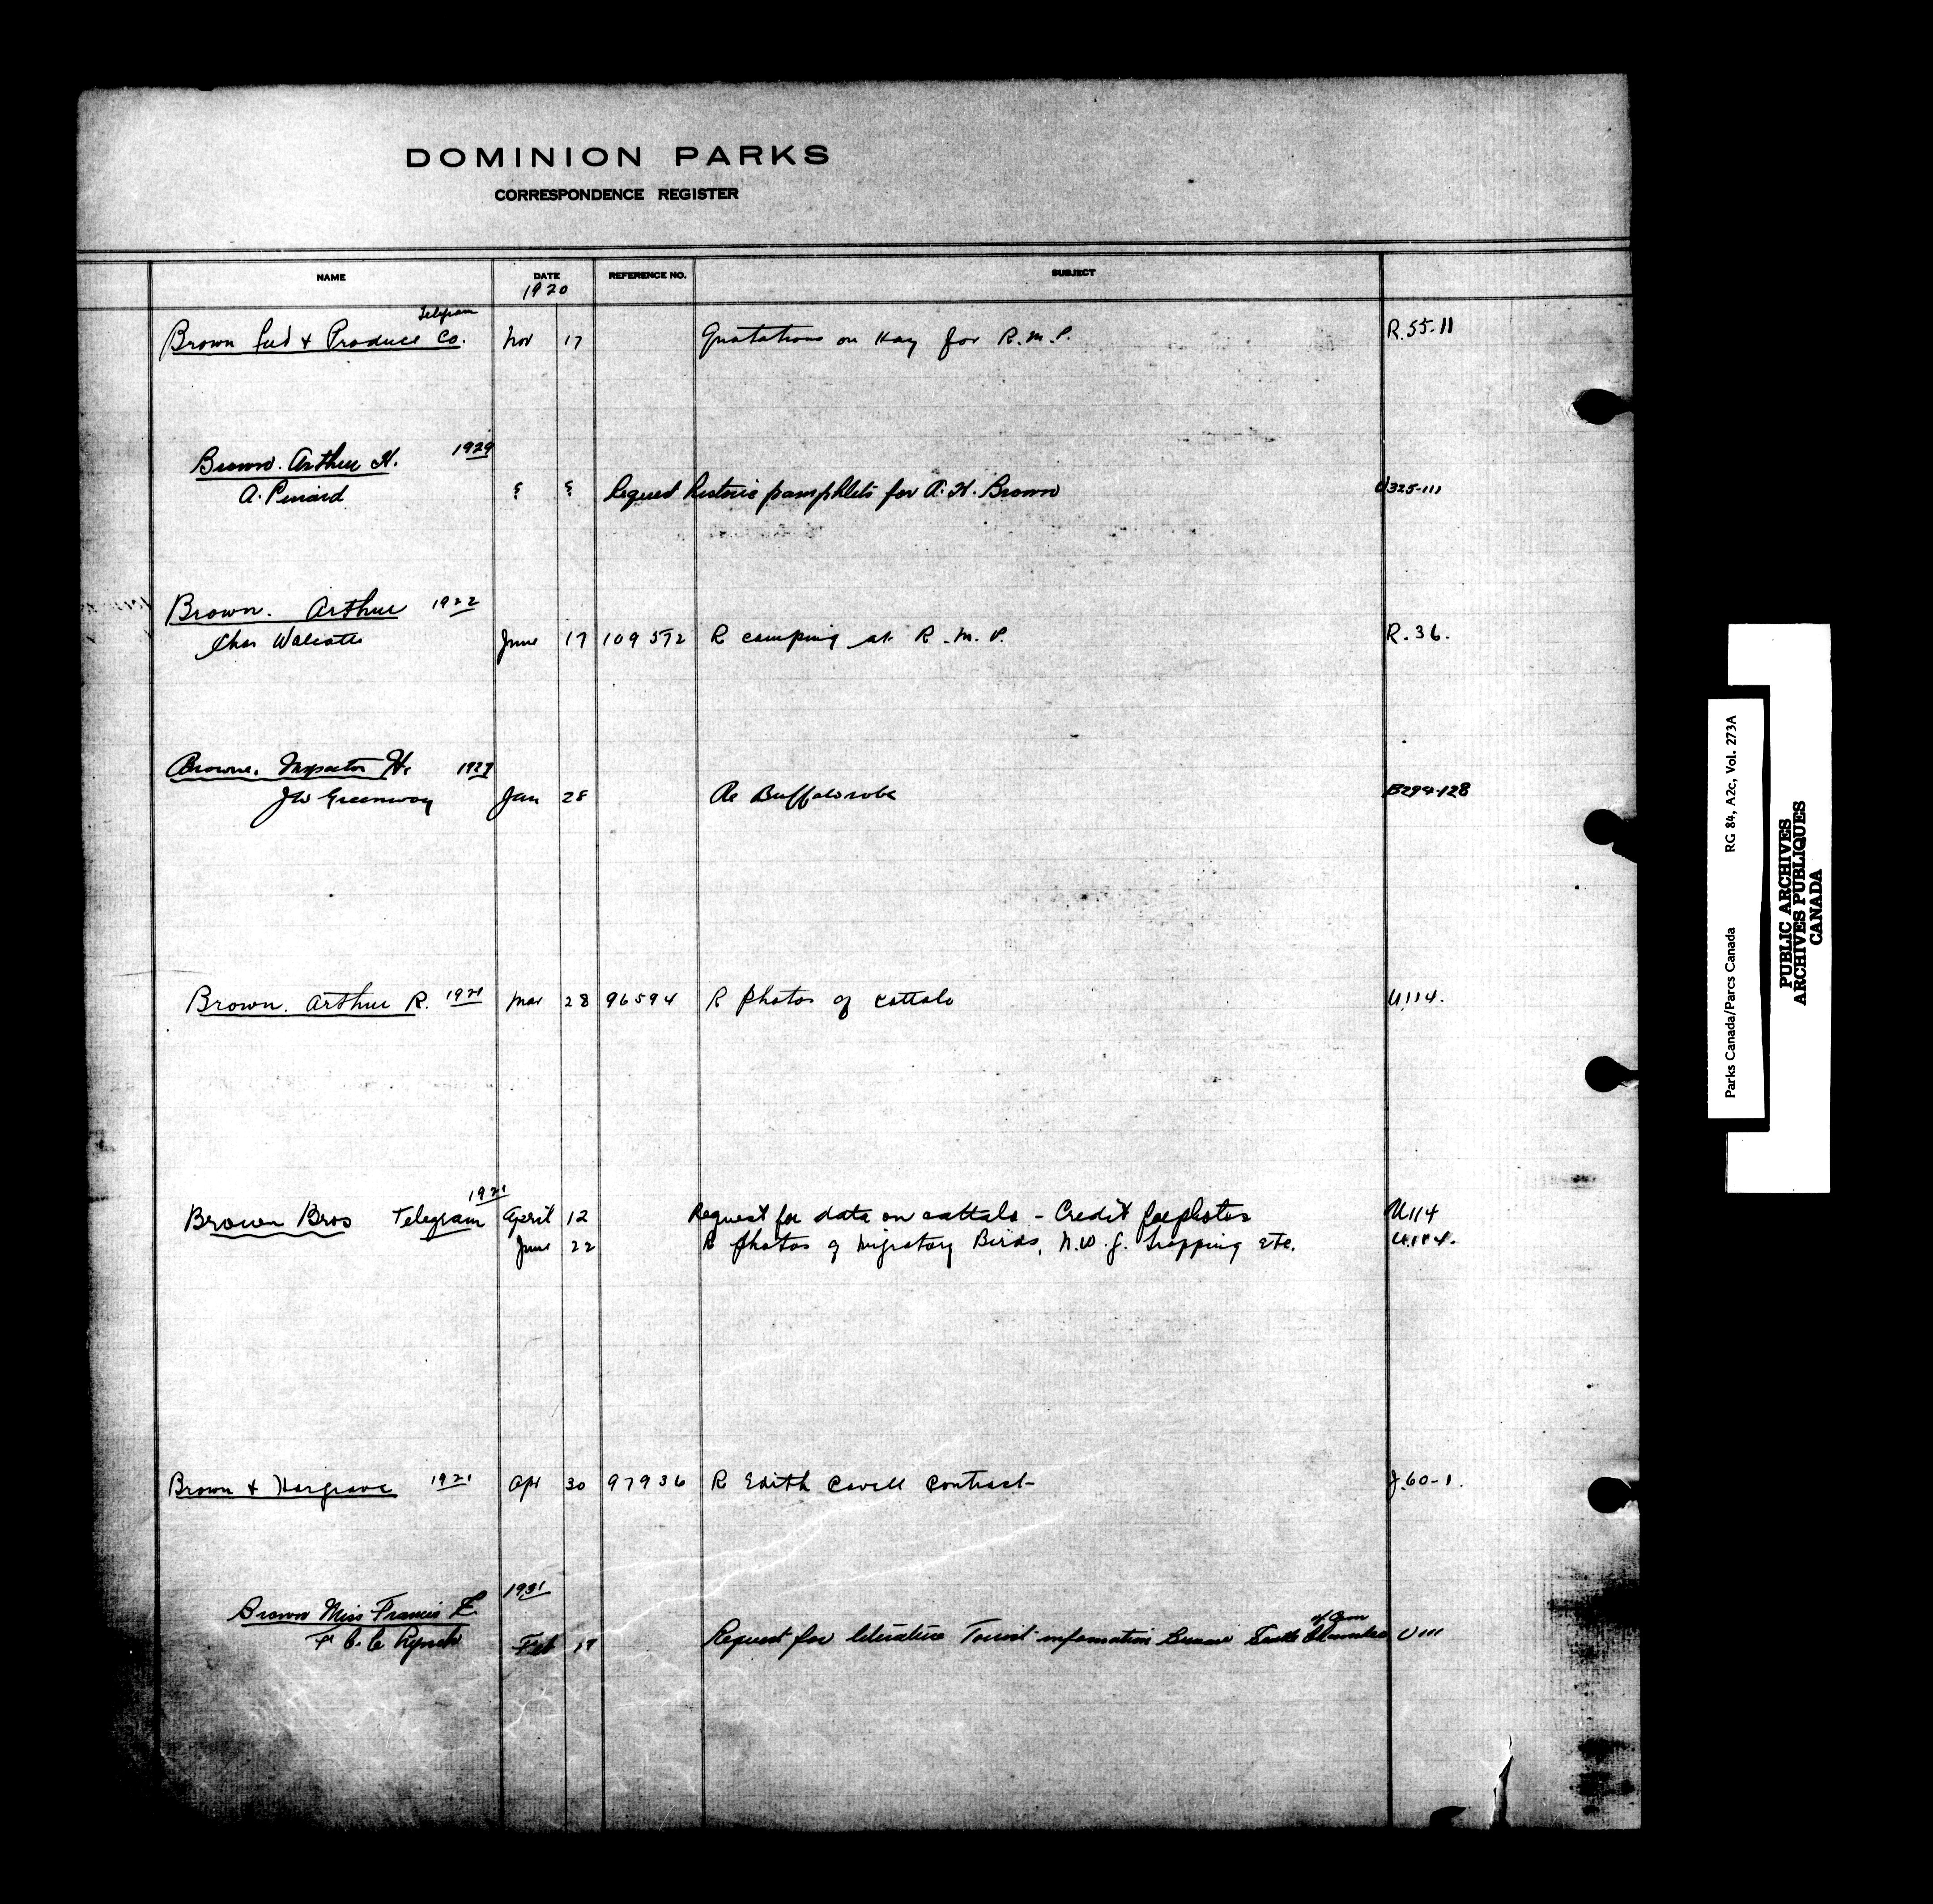 DOMINION PARKS
CORRESPONDENCE REGISTER
NAME DATE REFERENCE NO. SUBJECT
1920
Telegram
Brown Feed & Produce Co. Nov 17 Quotations on Hay for R.M.P. R.55-11
Brown. Arthur H. 1929
A. Penard ? ? Request historic pamphlets for A. H. Brown U325-111
Brown. Arthur 1922
Chas Walcott June 17 109572 R camping at R.M.P. R.36.
Browne. Inspector H. 1927
JW Greenway Jan 28 Re Buffalo robe B299-128
Brown. Arthur R. 1921 Mar 28 96594 R photos of cattalo U.114.
1921
Brown Bros Telegram April 12 Request for data on cattalo - Credit for photos U114
June 22 R photos of Migratory Birds, N.W.J. Trapping etc. U.114.
Brown & Hargrave 1921 Apr 30 97936 R Edith Cavell Contract J.60-1.
1931
Brown Miss Francis E.
F C. C Lynch Feb 17 Request for literature Tourist information Chamber of Com U111
Parks Canada/Parcs Canada RG 84, A2c, Vol. 273A
PUBLIC ARCHIVES
ARCHIVES PUBLIQUES
CANADA